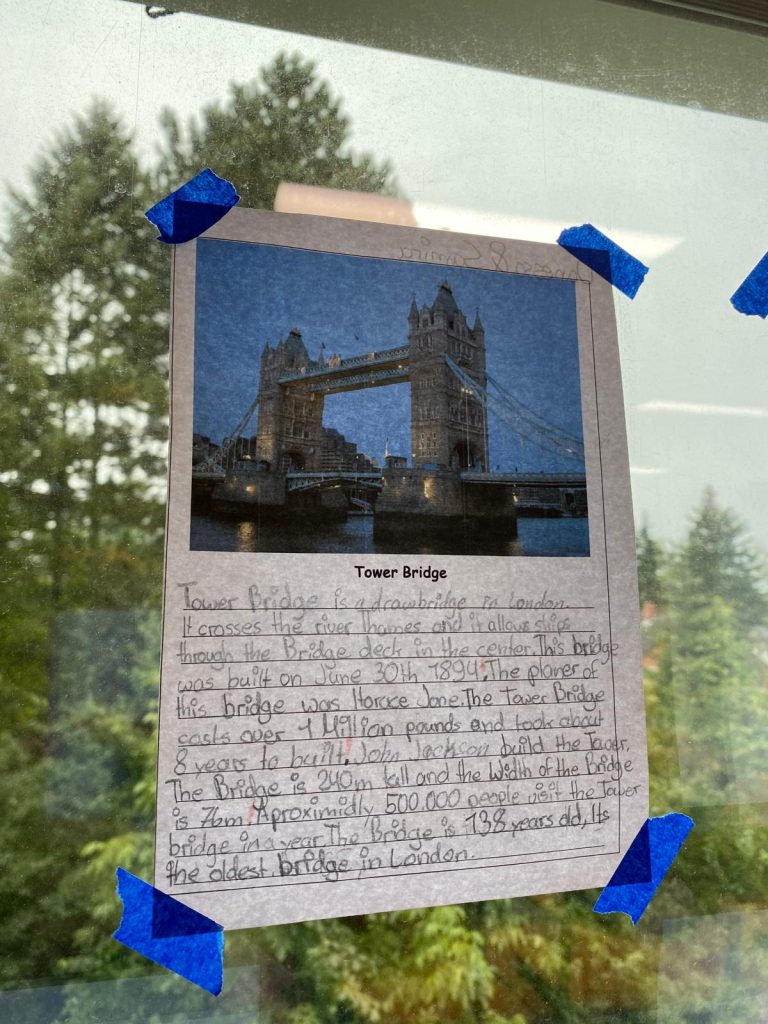 Tower Bridge
Tower Bridge is a drawbridge in London.
It crosses the river Thames and it allows ships
through the Bridge deck in the center. This bridge
was built on June 30th 1894. The planer of
this bridge was Horace Jone. The Tower Bridge
costs over 1 Million pounds and took about
8 years to built. John Jackson build the Tower.
The Bridge is 240m tall and the width of the Bridge
is 76m. Aproximidly, 500.000 people visit the Tower
bridge in a year. The Bridge is 138 years old, Its
the oldest bridge in London.